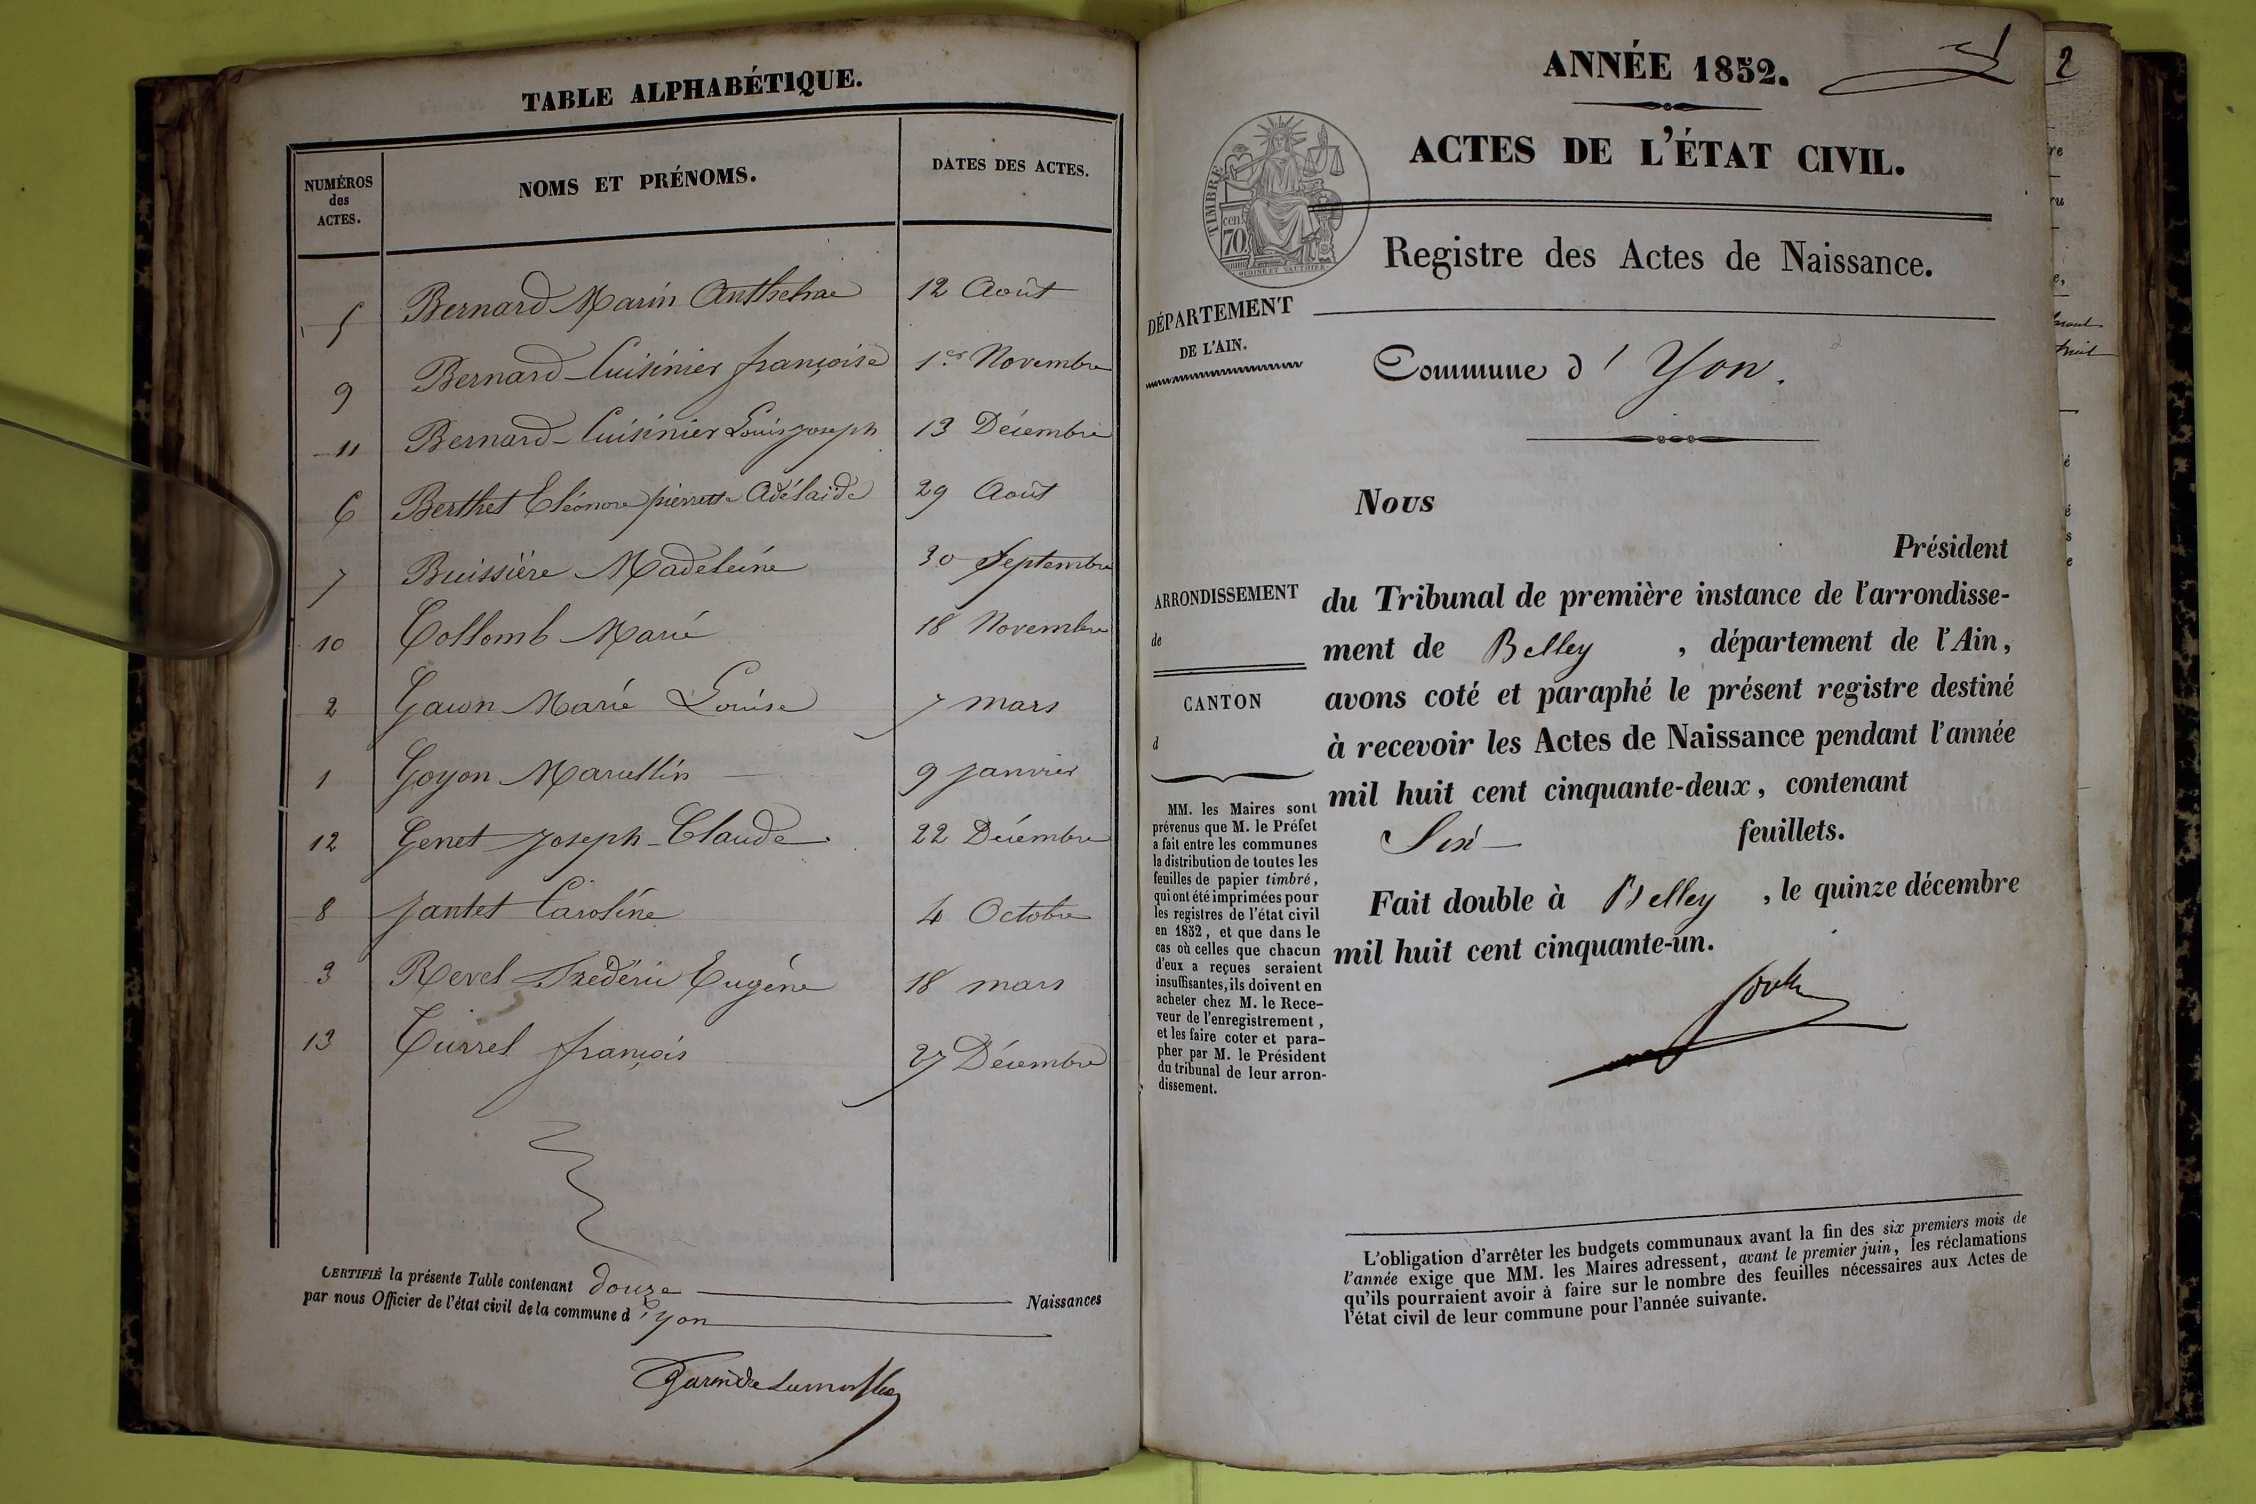 TABLE ALPHABÉTIQUE.
NUMÉROS
des
ACTES.
NOMS ET PRÉNOMS.
DATES DES ACTES.
5 Bernard Marin Anthelme 12 Août
9 Bernard-Cuisinier françoise 1er Novembre
11 Bernard-Cuisinier Louis joseph 13 Décembre
6 Berthet Eléonore pierrette Adélaïde 29 Août
7 Buissière Madeleine 30 Septembre
10 Collomb Marie 18 Novembre
2 Marie Louise 7 mars
1 Goyon Marcellin 9 janvier
12 Genet joseph-Claude 22 Décembre
8 jantet Caroline 4 Octobre
3 Revel Frédéric Eugène 18 mars
13 françois 27 Décembre
CERTIFIÉ la présente Table contenant douze Naissances
par nous Officier de l'état civil de la commune d'yon
ANNÉE 1852.
ACTES DE L'ÉTAT CIVIL.
TIMBRE
cent
70
OUDINE ET GAUTHIER
Registre des Actes de Naissance.
DÉPARTEMENT
DE L'AIN.
Commune d' Yon.
Nous
Président
ARRONDISSEMENT
de
CANTON
d
du Tribunal de première instance de l'arrondisse-
ment de Belley , département de l'Ain,
avons coté et paraphé le présent registre destiné
à recevoir les Actes de Naissance pendant l'année
mil huit cent cinquante-deux, contenant
Six feuillets.
Fait double à Belley , le quinze décembre
mil huit cent cinquante-un.
MM. les Maires sont
prévenus que M. le Préfet
a fait entre les communes
la distribution de toutes les
feuilles de papier timbré,
qui ont été imprimées pour
les registres de l'état civil
en 1852, et que dans le
cas où celles que chacun
d'eux a reçues seraient
insuffisantes, ils doivent en
acheter chez M. le Rece-
veur de l'enregistrement,
et les faire coter et para-
pher par M. le Président
du tribunal de leur arron-
dissement.
L'obligation d'arrêter les budgets communaux avant la fin des six premiers mois de
l'année exige que MM. les Maires adressent, avant le premier juin, les réclamations
qu'ils pourraient avoir à faire sur le nombre des feuilles nécessaires aux Actes de
l'état civil de leur commune pour l'année suivante.
2